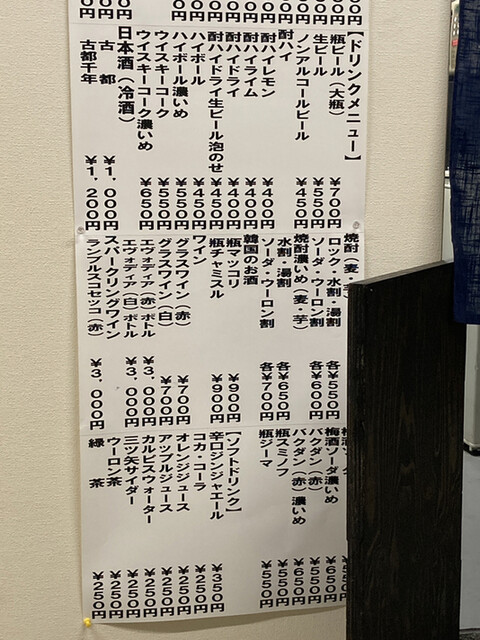 【ドリンクメニュー】
瓶ビール（大瓶） ¥700円
生ビール ¥550円
ノンアルコールビール ¥450円
酎ハイ
酎ハイレモン ¥400円
酎ハイライム ¥400円
酎ハイドライ ¥400円
酎ハイドライ生ビール泡のせ ¥450円
ハイボール ¥450円
ハイボール濃いめ ¥550円
ウイスキーコーク ¥550円
ウイスキーコーク濃いめ ¥650円
日本酒（冷酒）
古 都 ¥1,000円
古都千年 ¥1,200円
焼酎（麦・芋）
ロック・水割・湯割 各¥550円
ソーダ・ウーロン割 各¥600円
焼酎濃いめ（麦・芋）
水割・湯割 各¥650円
ソーダ・ウーロン割 各¥700円
韓国のお酒
瓶マッコリ ¥900円
瓶チャミスル ¥900円
ワイン
グラスワイン（赤） ¥700円
グラスワイン（白） ¥700円
エヴォディア（赤）ボトル ¥3,000円
エヴォディア（白）ボトル ¥3,000円
スパークリングワイン
ランブルスコセッコ（赤） ¥3,000円
梅酒ソーダ濃いめ ¥650円
バクダン（赤） ¥550円
バクダン（赤）濃いめ ¥650円
瓶スミノフ ¥550円
瓶ジーマ ¥550円
【ソフトドリンク】
辛口ジンジャエール ¥350円
コカ・コーラ ¥250円
オレンジジュース ¥250円
アップルジュース ¥250円
カルピスウォーター ¥250円
三ツ矢サイダー ¥250円
ウーロン茶 ¥250円
緑 茶 ¥250円